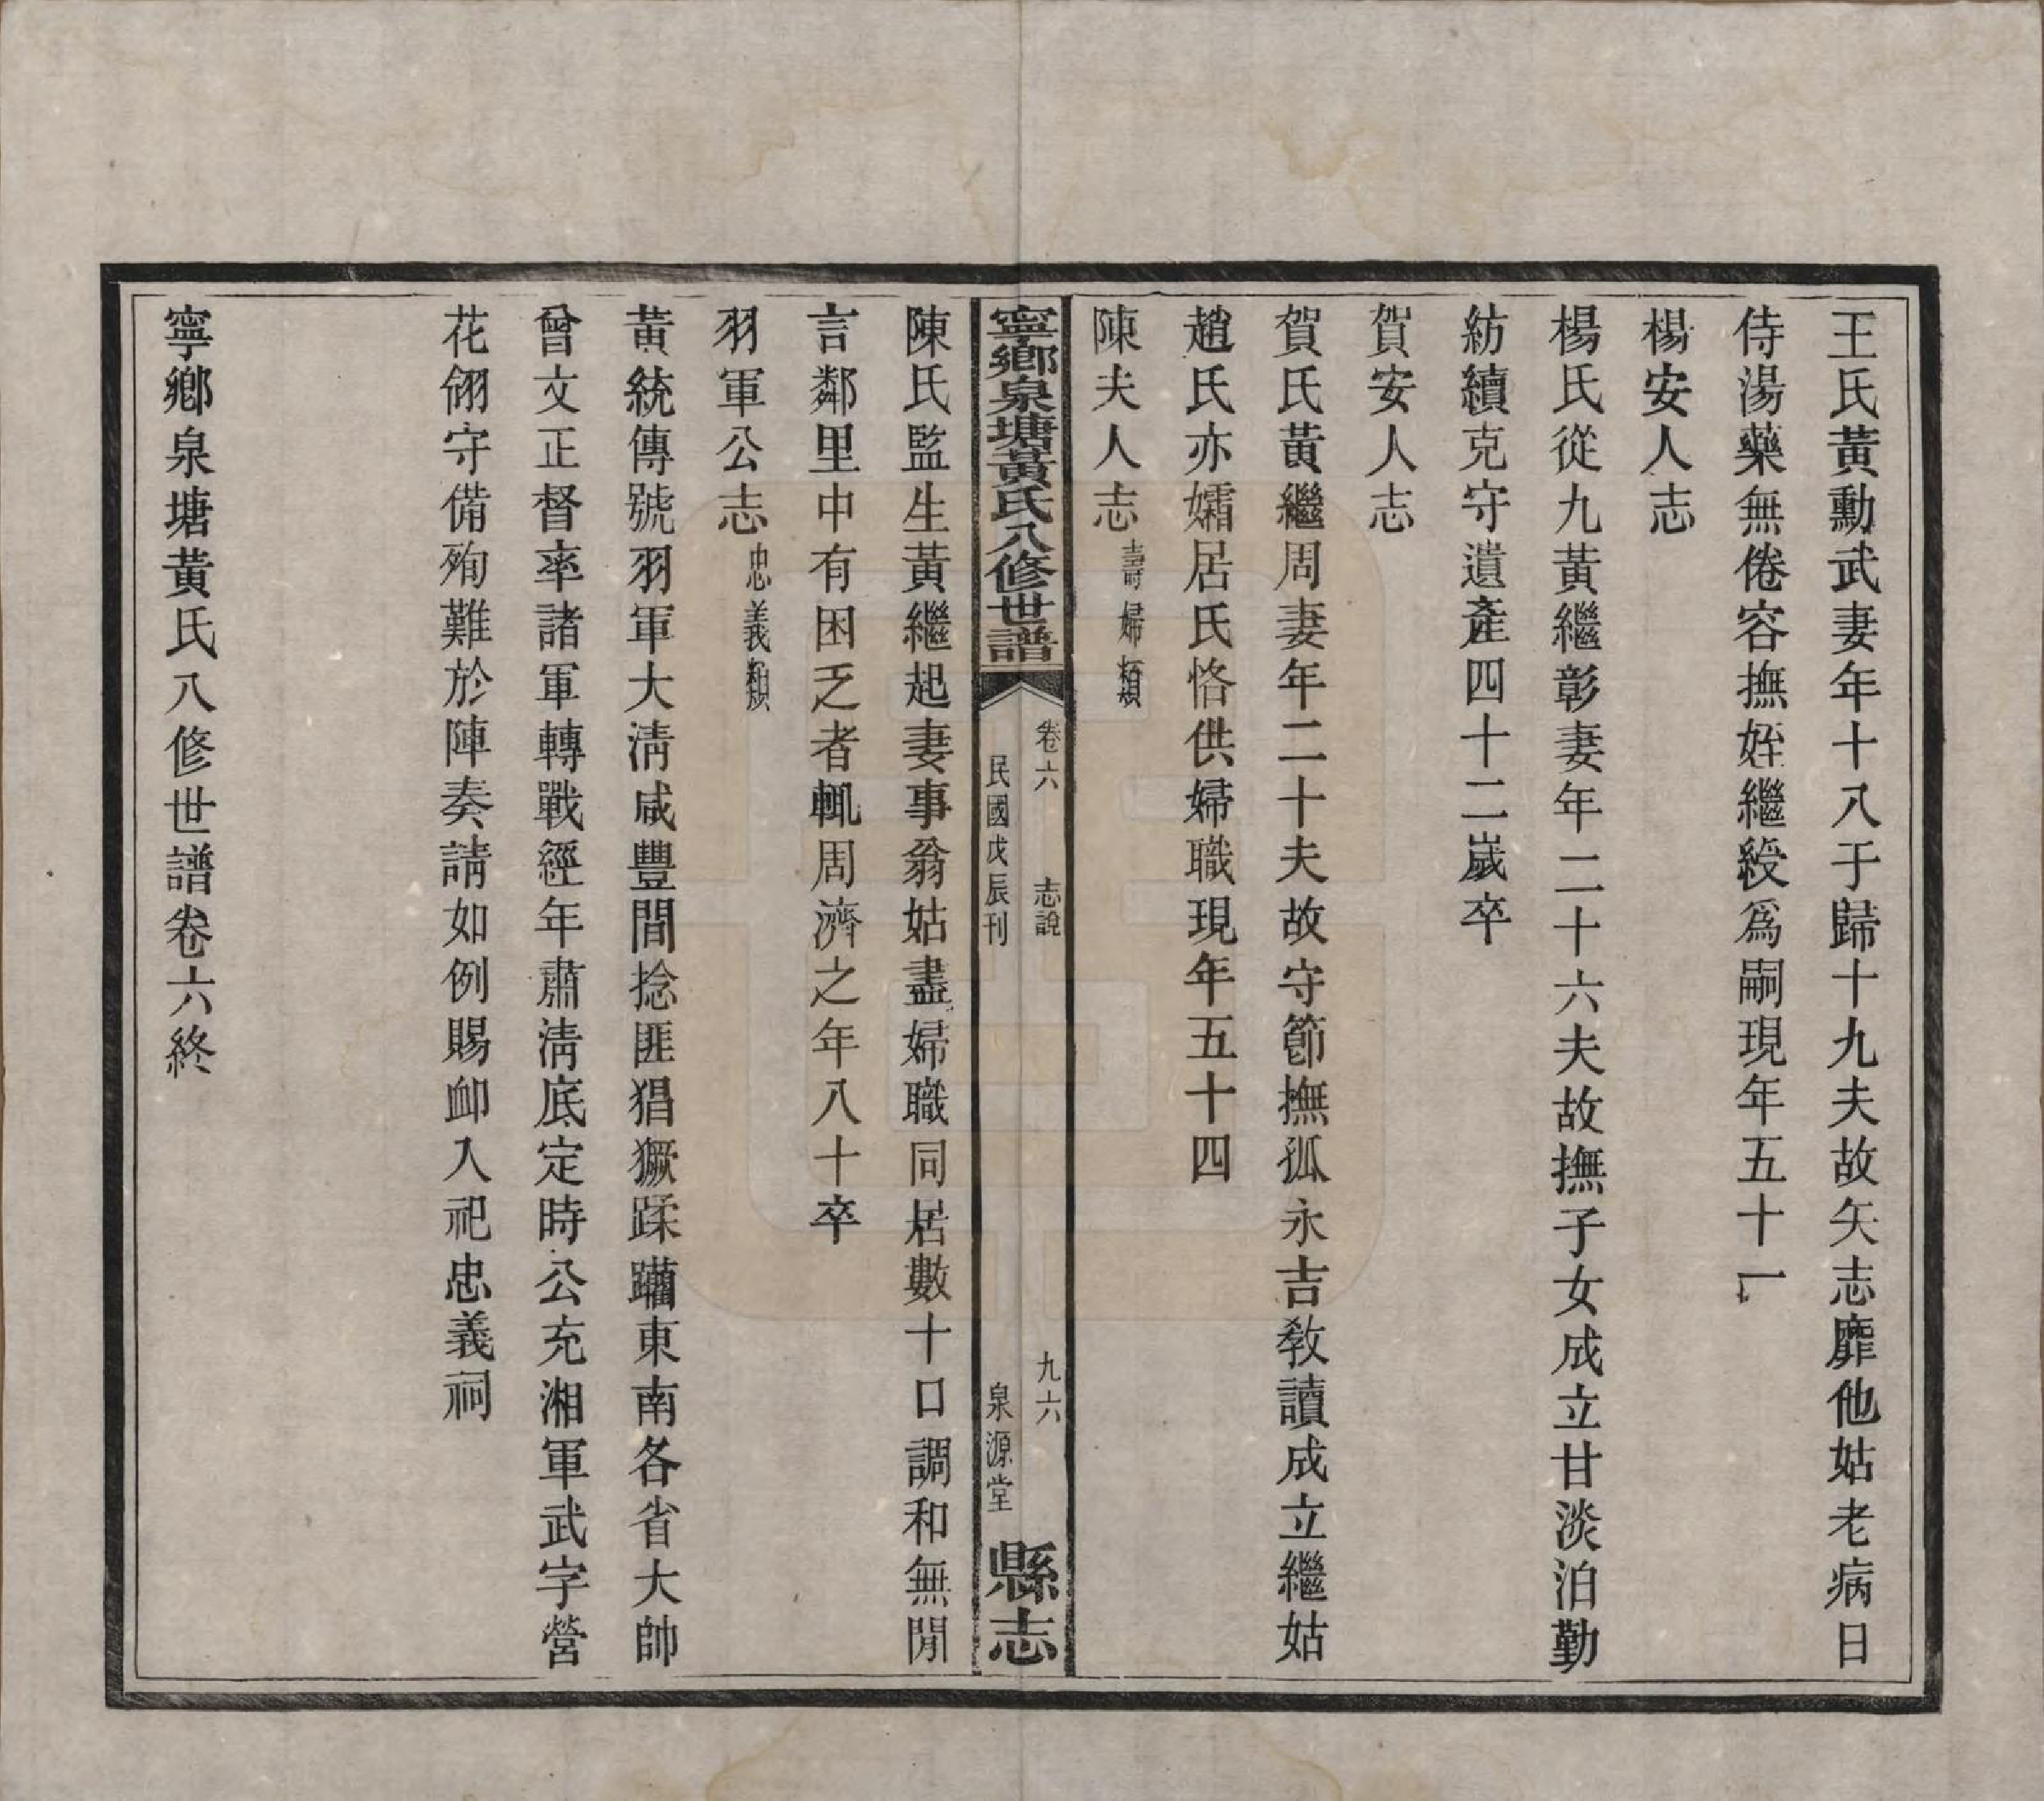 王氏黃勳武妻年十八于歸十九夫故矢志靡他姑老病日
侍湯藥無倦容撫姪繼綬爲嗣現年五十一
楊安人志
楊氏從九黃繼彰妻年二十六夫故撫子女成立甘淡泊勤
紡續克守遺產四十二嵗卒
賀安人志
賀氏黃繼周妻年二十夫故守節撫孤永吉教讀成立繼姑
趙氏亦孀居氏恪供婦職現年五十四
陳夫人志 壽婦類
寧鄉泉塘黃氏八修世譜
卷六 志說 九六
民國戊辰刊 泉源堂
縣志
陳氏監生黃繼起妻事翁姑盡婦職同居數十口調和無閒
言鄰里中有困乏者輒周濟之年八十卒
羽軍公志 忠義類
黃統傳號羽軍大淸咸豐間捻匪猖獗蹂躪東南各省大帥
曾文正督率諸軍轉戰經年肅淸底定時公充湘軍武字營
花翎守備殉難於陣奏請如例賜卹入祀忠義祠
寧鄉泉塘黃氏八修世譜卷六終